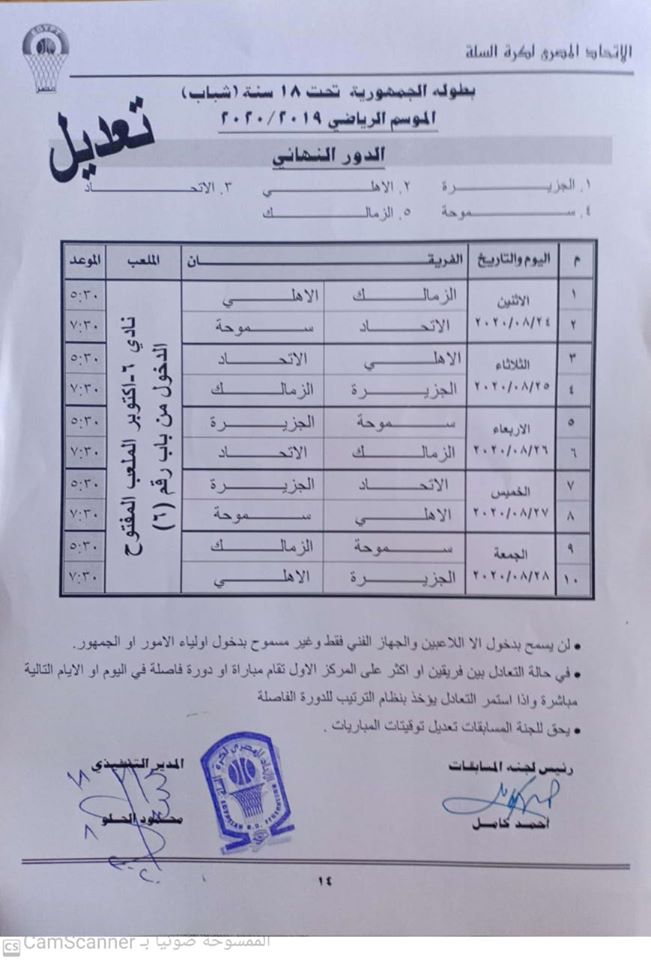 الإتحاد المصرى لكرة السلة
مصر
بطوله الجمهورية تحت ١٨ سنة (شباب)
الموسم الرياضي ٢٠٢٠/٢٠١٩
تعديل
الدور النهائي
١. الجزيـــــرة ٢. الاهلـــــي ٣. الاتحـــــاد
٤. ســـــموحة ٥. الزمالـــــك
م اليوم والتاريخ الفريقـــــان الملعب الموعد
١ الاثنين الزمالـــك الاهلـــي ٥:٣٠
٢ ٢٠٢٠/٠٨/٢٤ الاتحـــاد ســـموحة ٧:٣٠
٣ الثلاثاء الاهلـــي الاتحـــاد ٥:٣٠
٤ ٢٠٢٠/٠٨/٢٥ الجزيـــرة الزمالـــك ٧:٣٠
٥ الاربعاء ســـموحة الجزيـــرة ٥:٣٠
٦ ٢٠٢٠/٠٨/٢٦ الزمالـــك الاتحـــاد ٧:٣٠
٧ الخميس الاتحـــاد الجزيـــرة ٥:٣٠
٨ ٢٠٢٠/٠٨/٢٧ الاهلـــي ســـموحة ٧:٣٠
٩ الجمعة ســـموحة الزمالـــك ٥:٣٠
١٠ ٢٠٢٠/٠٨/٢٨ الجزيـــرة الاهلـــي ٧:٣٠
نادي ٦-اكتوبر الملعب المفتوح
الدخول من باب رقم (٦)
• لن يسمح بدخول الا اللاعبين والجهاز الفني فقط وغير مسموح بدخول اولياء الامور او الجمهور.
• في حالة التعادل بين فريقين او اكثر على المركز الاول تقام مباراة او دورة فاصلة في اليوم او الايام التالية
مباشرة واذا استمر التعادل يؤخذ بنظام الترتيب للدورة الفاصلة
• يحق للجنة المسابقات تعديل توقيتات المباريات .
رئيس لجنه المسابقات المدير التنفيذي
أحمد كامل محمود الحلو
الإتحاد المصرى لكرة السلة
١٤
CS CamScanner الممسوحة ضوئيا بـ